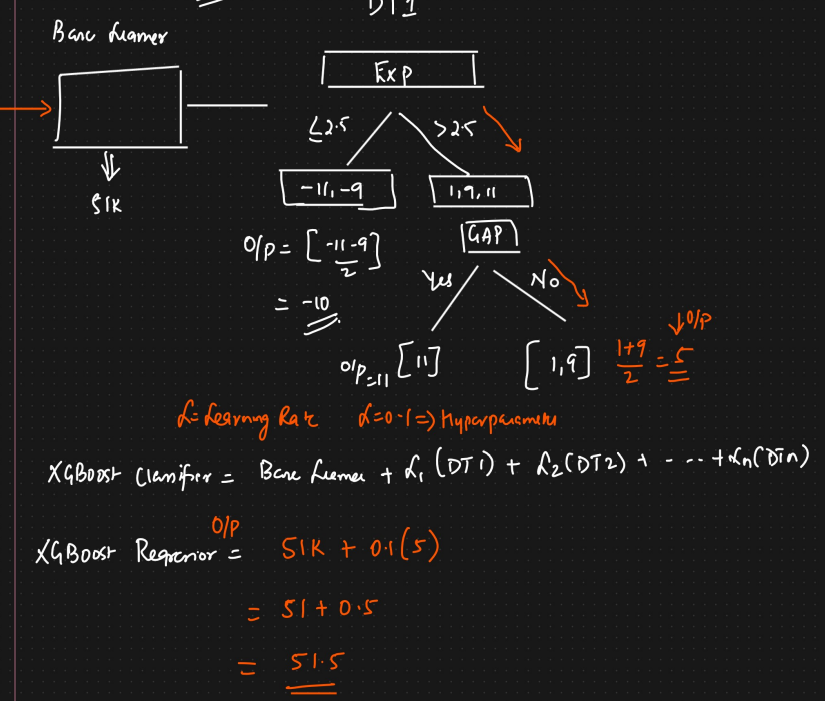 DT1
Base Learner
Exp
≤2.5
>2.5
51K
-11, -9
1, 9, 11
O/P = [-11-9/2]
GAP
Yes
No
= -10
O/P=11 [11]
[1,9] 1+9/2 = 5
O/P
α= Learning Rate α=0.1 => Hyperparameter
XGBoost Classifier = Base Learner + α1 (DT1) + α2 (DT2) + - - - + αn (DTn)
O/P
XGBoost Regressor = 51K + 0.1(5)
= 51 + 0.5
= 51.5